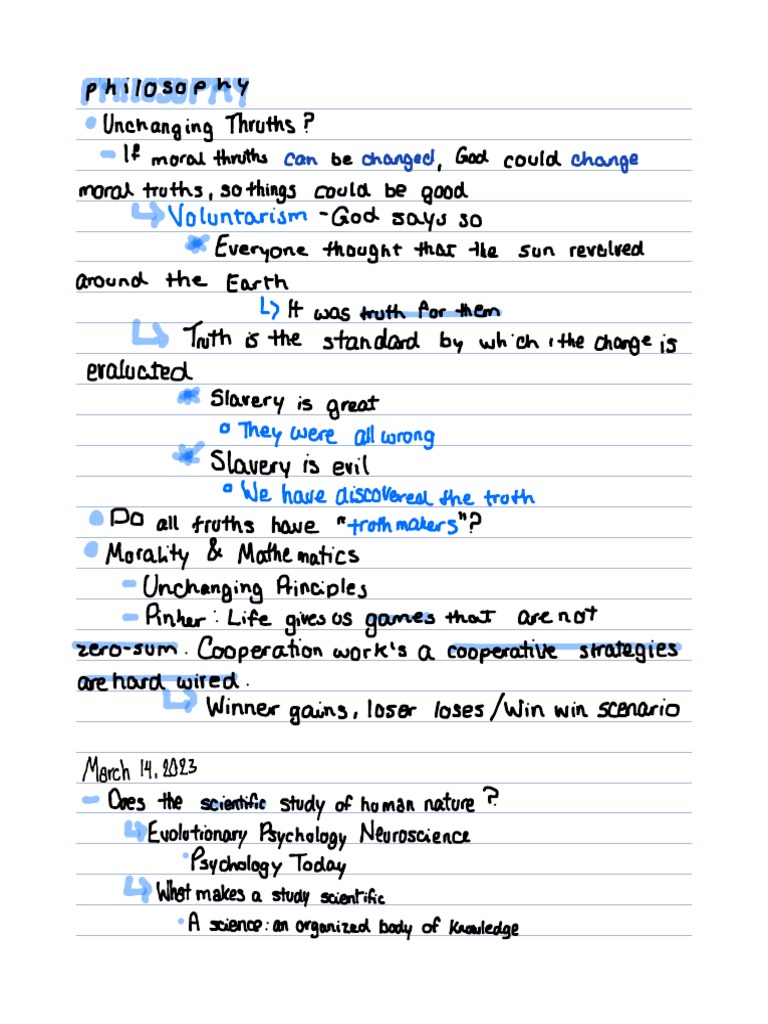 philosophy
• Unchanging Thruths?
- If moral thruths can be changed, God could change
moral truths, so things could be good
↳ Voluntarism - God says so
* Everyone thought that the sun revolved
around the Earth
↳ It was truth for them
↳ Truth is the standard by which the change is
evaluated
* Slavery is great
◦ They were all wrong
* Slavery is evil
◦ We have discovered the truth
• Do all truths have "truthmakers"?
• Morality & Mathematics
- Unchanging Principles
- Pinker: Life gives us games that are not
zero-sum. Cooperation work's a cooperative strategies
are hard wired.
↳ Winner gains, loser loses/Win win scenario
March 14, 2023
- Does the scientific study of human nature?
↳ Evolutionary Psychology Neuroscience
• Psychology Today
↳ What makes a study scientific
• A science: an organized body of knowledge